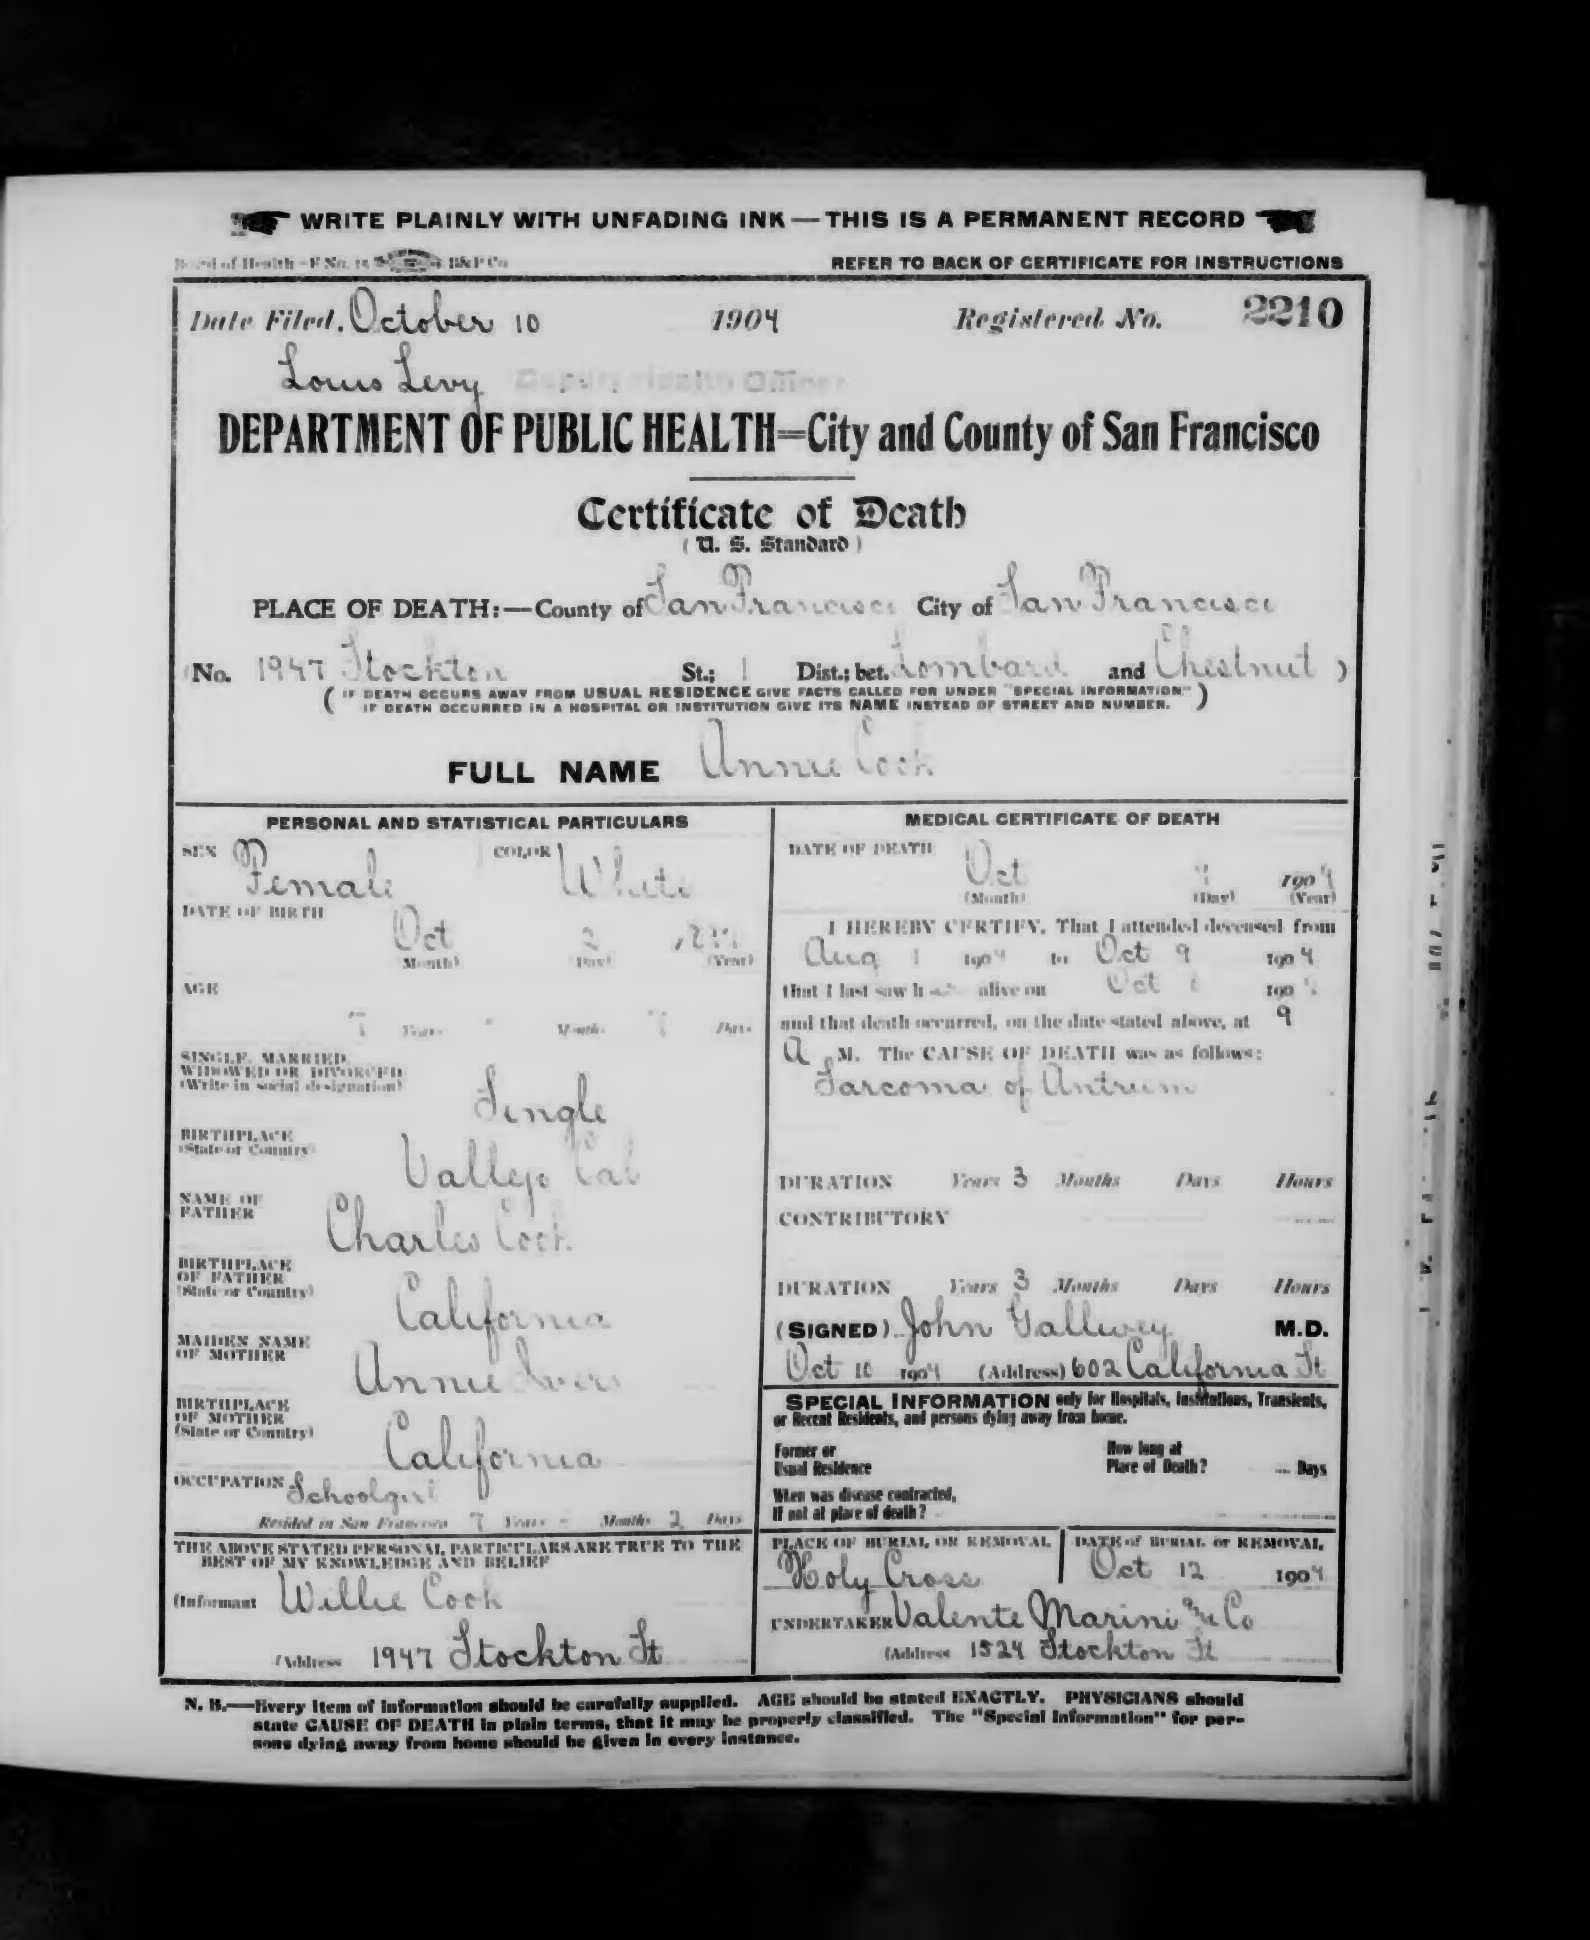 WRITE PLAINLY WITH UNFADING INK — THIS IS A PERMANENT RECORD
Board of Health - F No. 15 B&P Co
REFER TO BACK OF CERTIFICATE FOR INSTRUCTIONS
Date Filed. October 10 1904 Registered No. 2210
Louis Levy Deputy Health Officer
DEPARTMENT OF PUBLIC HEALTH=City and County of San Francisco
Certificate of Death
(U. S. Standard)
PLACE OF DEATH:—County of San Francisco City of San Francisco
(No. 1947 Stockton St.; 1 Dist.; bet. Lombard and Chestnut )
( IF DEATH OCCURS AWAY FROM USUAL RESIDENCE GIVE FACTS CALLED FOR UNDER "SPECIAL INFORMATION"
IF DEATH OCCURRED IN A HOSPITAL OR INSTITUTION GIVE ITS NAME INSTEAD OF STREET AND NUMBER. )
FULL NAME Annie Cook
PERSONAL AND STATISTICAL PARTICULARS
SEX Female COLOR White
DATE OF BIRTH
Oct 2
(Month) (Day) (Year)
AGE
7 Years Months 7 Days
SINGLE, MARRIED,
WIDOWED OR DIVORCED
(Write in social designation)
Single
BIRTHPLACE
(State or Country)
Vallejo Cal
NAME OF
FATHER
Charles Cook
BIRTHPLACE
OF FATHER
(State or Country)
California
MAIDEN NAME
OF MOTHER
Annie
BIRTHPLACE
OF MOTHER
(State or Country)
California
OCCUPATION Schoolgirl
Resided in San Francisco 7 Years - Months 2 Days
THE ABOVE STATED PERSONAL PARTICULARS ARE TRUE TO THE
BEST OF MY KNOWLEDGE AND BELIEF
(Informant Willie Cook
(Address 1947 Stockton St
MEDICAL CERTIFICATE OF DEATH
DATE OF DEATH
Oct 9 1904
(Month) (Day) (Year)
I HEREBY CERTIFY, That I attended deceased from
Aug 1 1904 to Oct 9 1904
that I last saw h alive on Oct 190
and that death occurred, on the date stated above, at 9
A M. The CAUSE OF DEATH was as follows:
Sarcoma of Antrum
DURATION Years 3 Months Days Hours
CONTRIBUTORY
DURATION Years 3 Months Days Hours
(SIGNED) John Gallwey M.D.
Oct 10 1904 (Address) 602 California St
SPECIAL INFORMATION only for Hospitals, Institutions, Transients,
or Recent Residents, and persons dying away from home.
Former or
Usual Residence
How long at
Place of Death? Days
When was disease contracted,
If not at place of death?
PLACE OF BURIAL OR REMOVAL
Holy Cross
DATE of BURIAL or REMOVAL
Oct 12 1904
UNDERTAKER Valente Marini & Co
(Address 1524 Stockton St
N. B.—Every item of information should be carefully supplied. AGE should be stated EXACTLY. PHYSICIANS should
state CAUSE OF DEATH in plain terms, that it may be properly classified. The "Special Information" for per-
sons dying away from home should be given in every instance.